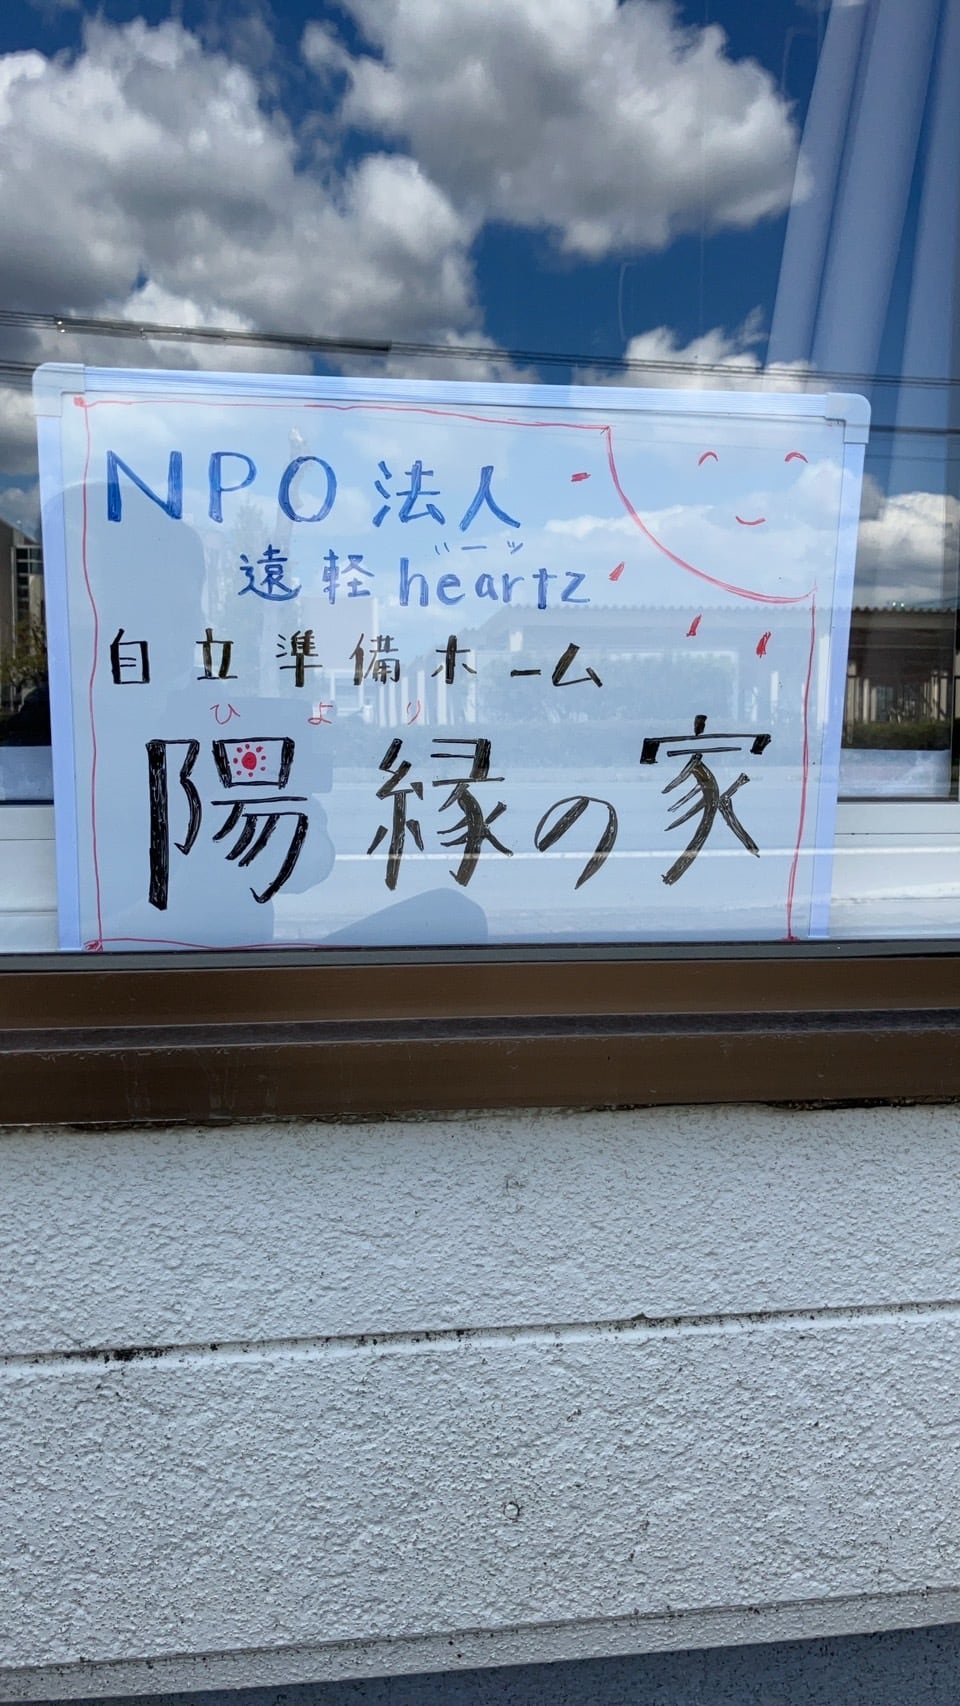 NPO 法人
ハーツ
遠軽 heartz
自立準備ホーム
ひより
陽縁の家